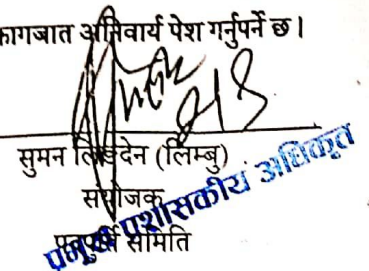 कागजात अनिवार्य पेश गर्नुपर्ने छ।
सुमन लिङदेन (लिम्बु)
संयोजक
पदपूर्ति समिति
प्रमुख प्रशासकीय अधिकृत